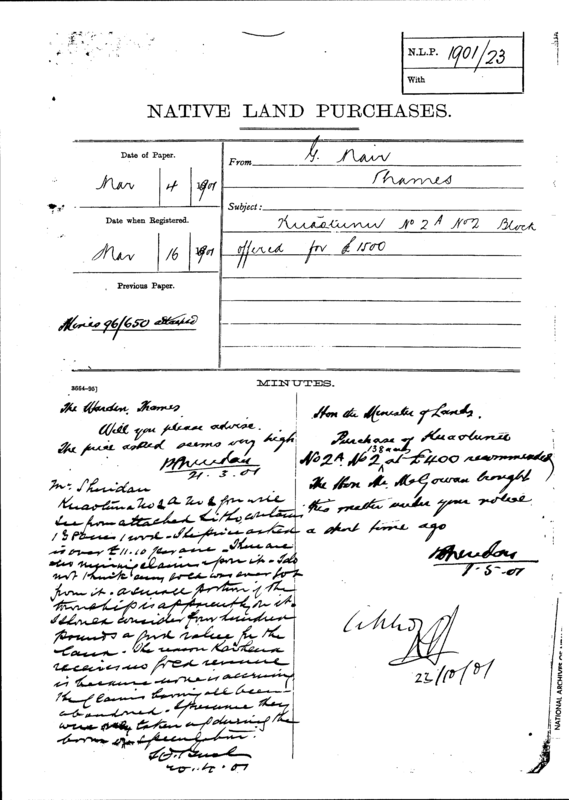 N.L.P. 1901/23
With
NATIVE LAND PURCHASES.
Date of Paper.
Mar 4 1901
Date when Registered.
Mar 16 1901
Previous Paper.
Mines 96/650 attached
From G. Mair
Thames
Subject:
Kuaotunu No 2A No 2 Block
offered for £1500
3664-95]
MINUTES.
The Warden, Thames.
Will you please advise.
The price asked seems very high
21.3.01
Mr Sheridan
Kuaotunu No 2A No 2 from
see from attached litho contains
138 acres 1 rood. The price asked
is over £11.10 per acre. There are
no mining claims upon it. I do
not think any gold was ever got
from it. A small portion of the
township is apparently on it.
I should consider four hundred
pounds a good value for the
land. The reason
receives no gold revenue
is because none is accruing
the claims having all been
abandoned. I presume they
were only taken up during the
boom
20.4.01
Hon the Minister of Lands.
Purchase of Kuaotunu
No 2A No 2 138 acres at £400 recommended
The Hon Mr McGowan brought
this matter under your notice
a short time ago
1.5.01
23/10/01
NATIONAL ARCHIVES OF